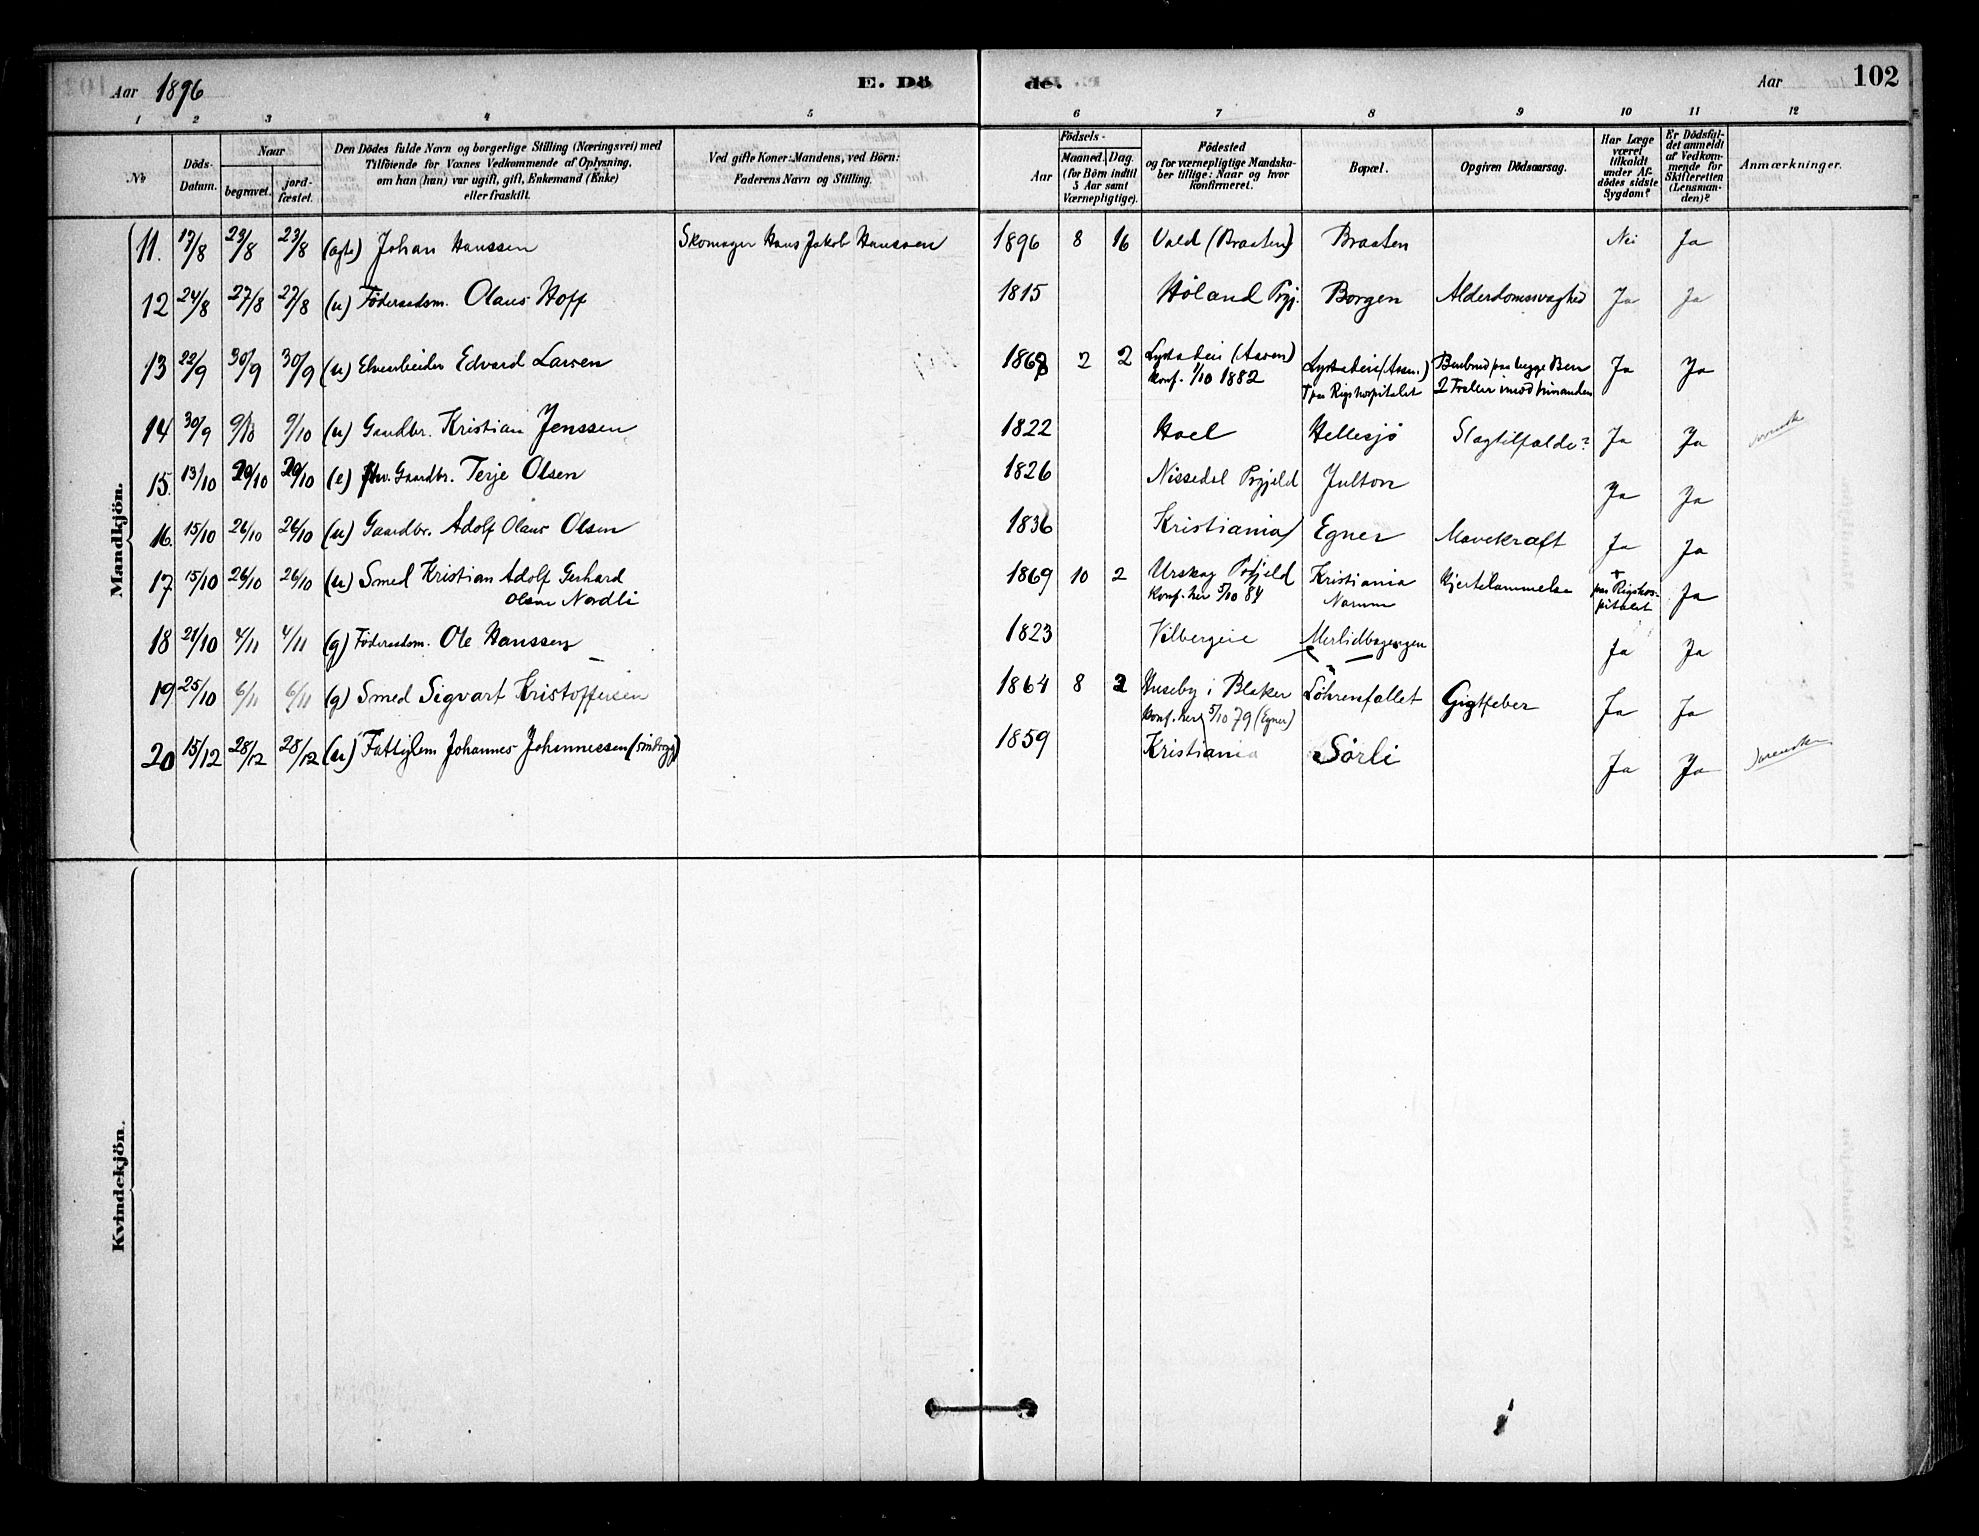 Aar 1896 E. Dö de. Aar 102
1 2 3 4 5 6 7 8 9 10 11 12
No
Döds-Datum.
Naar
begravet.
jord-fæstet.
Den Dödes fulde Navn og borgerlige Stilling (Næringsvei) med
Tilföiende for Voxnes Vedkommende af Oplysning,
om han (hun) var ugift, gift, Enkemand (Enke)
eller fraskilt.
Ved gifte Koner: Mandens, ved Börn:
Faderens Navn og Stilling.
Födsels-
Aar
Maaned. Dag.
(for Börn indtil
5 Aar samt
Værnepligtige).
Födested
og for værnepligtige Mandska-
ber tillige: Naar og hvor
konfirmeret.
Bopæl.
Opgiven Dödsaarsag.
Har Læge
været
tilkaldt
under Af-
dödes sidste
Sygdom?
Er Dödsfal-
det anmeldt
af Vedkom-
mende for
Skifteretten
(Lensman-
den)?
Anmærkninger.
Mandkjön.
11. 17/8 23/8 23/8 (ægte) Johan Hanssen Skomager Hans Jakob Hanssen 1896 8 16 Vald (Braaten) Braaten Nei Ja
12 24/8 27/8 27/8 (u) Föderaadsm. Olaus Hoff 1815 Höland Prgj. Borgen Alderdomssvaghed Ja Ja
13 22/9 30/9 30/9 (u) Edvard Larsen 1868 2 2 (Aasen) Benbrud paa begge Ben Ja Ja
Konf. 1/10 1882 paa Rigshospitalet 2 Traller imod hinanden
14 30/9 9/10 9/10 (u) Gaardbr. Kristian Jenssen 1822 Hoel Hellesjö Slagtilfælde? Ja Ja
15. 13/10 20/10 20/10 (e) Gaardbr. Terje Olsen 1826 Nissedal Prgjeld Julton Ja Ja
16. 15/10 26/10 26/10 (u) Gaardbr. Adolf Olaus Olsen 1836 Kristiania Egner Mavekræft Ja Ja
17 15/10 26/10 26/10 (u) Smed Kristian Adolf Gerhard 1869 10 2 Urskog Prgjeld Kristiania Hjertelammelse + paa Rigshos- Ja
Olsen Nordli Konf. her 5/10 84 pitalet
18 21/10 4/11 4/11 (g) Föderaadsm. Ole Hanssen 1823 Vilbergeie Ja Ja
19 25/10 6/11 6/11 (g) Smed Sigvart Kristoffersen 1864 8 2 Huseby i Blaker Löhrenfallet Gigtfeber Ja Ja
Konf. her 5/10 79 (Egner)
20 15/12 28/12 28/12 (u) Fattiglem Johannes Johannessen 1859 Kristiania Sörli Ja Ja
Kvindekjön.